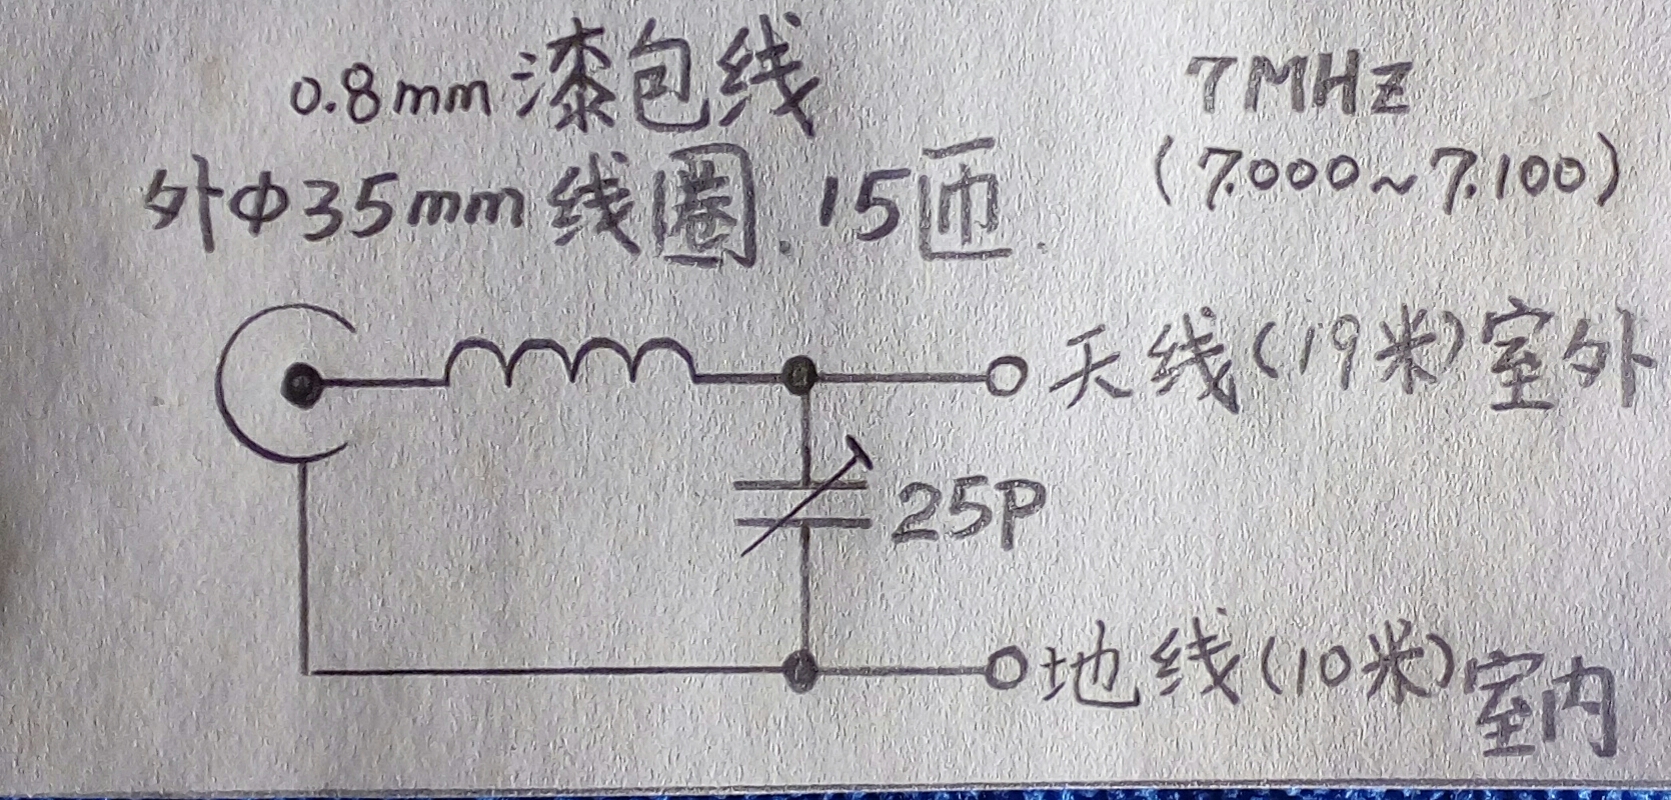 0.8mm漆包线
外Φ35mm线圈.15匝.
7MHz
(7.000~7.100)
天线(19米)室外
25P
地线(10米)室内